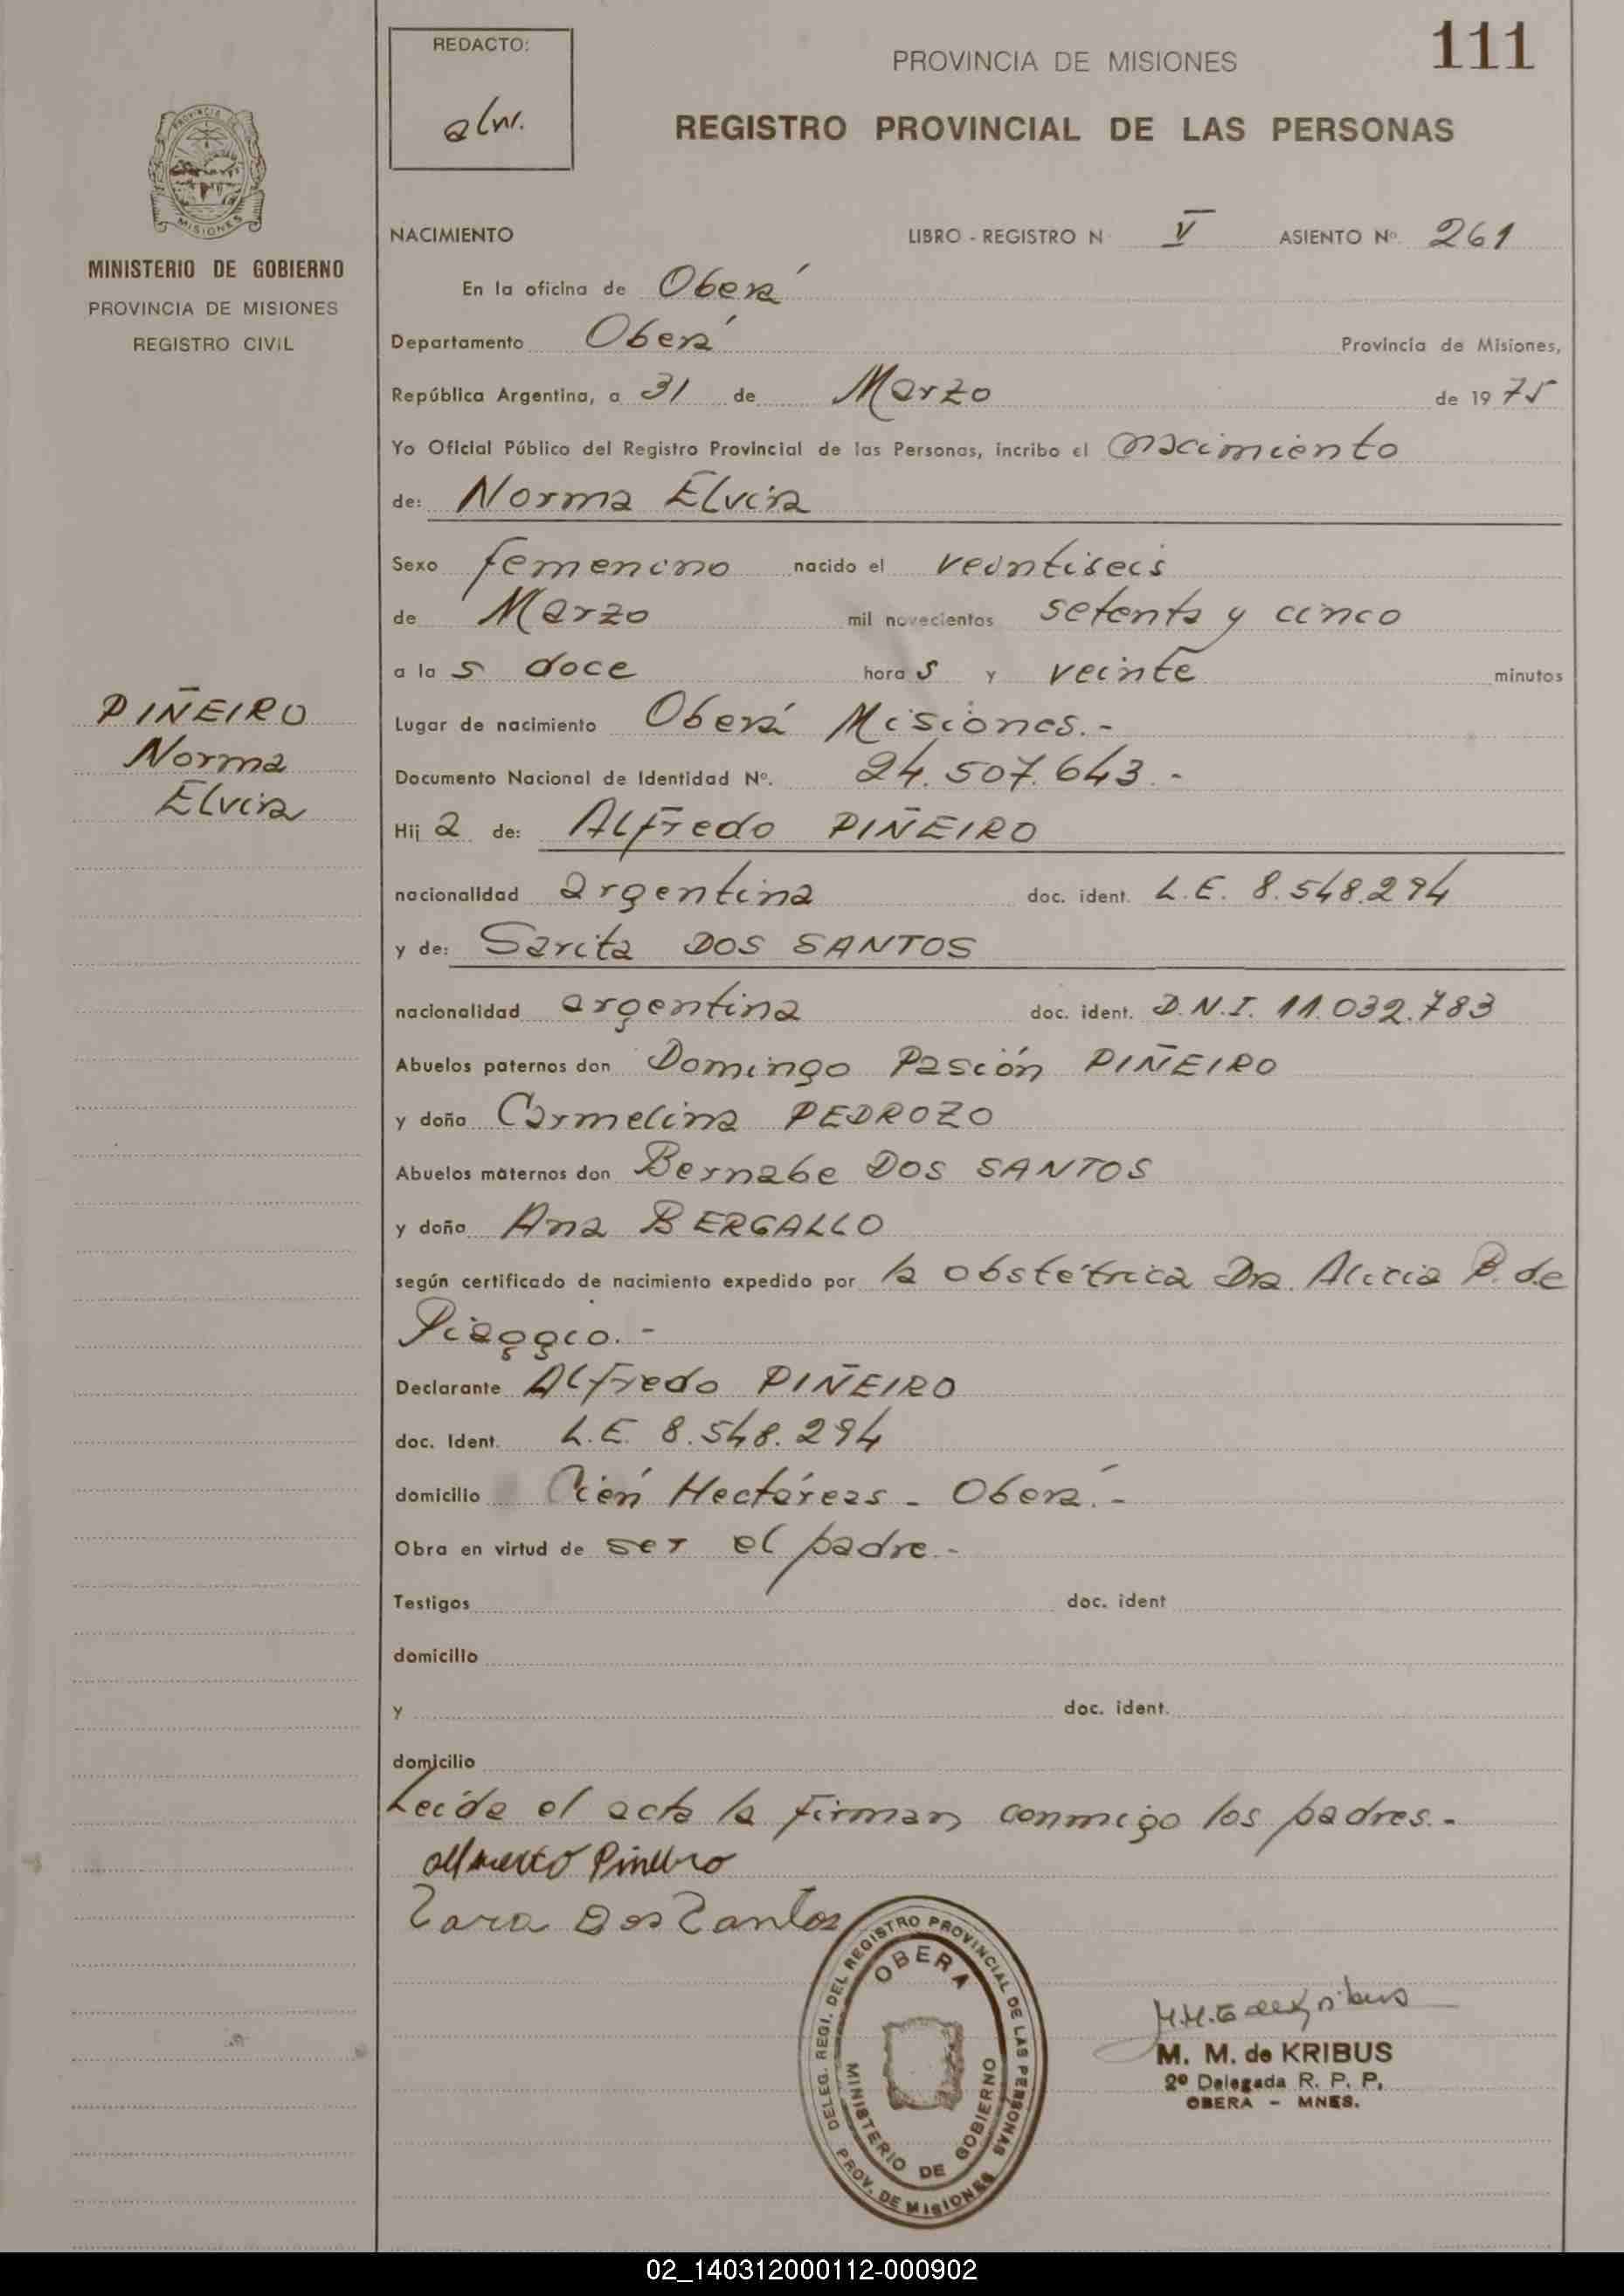 REDACTO:
alw.
PROVINCIA DE MISIONES
111
REGISTRO PROVINCIAL DE LAS PERSONAS
MISIONES
MINISTERIO DE GOBIERNO
PROVINCIA DE MISIONES
REGISTRO CIVIL
NACIMIENTO LIBRO - REGISTRO N V ASIENTO Nº 261
En la oficina de Oberá
Departamento Oberá Provincia de Misiones,
República Argentina, a 31 de Marzo de 19 75
Yo Oficial Público del Registro Provincial de las Personas, incribo el nacimiento
de: Norma Elvira
Sexo femenino nacido el veintiseis
de Marzo mil novecientos setenta y cinco
a la s doce hora s y veinte minutos
PIÑEIRO
Norma
Elvira
Lugar de nacimiento Oberá Misiones.-
Documento Nacional de Identidad Nº. 24.507.643.-
Hij a de: Alfredo PIÑEIRO
nacionalidad argentina doc. ident. L.E. 8.548.294
y de: Sarita DOS SANTOS
nacionalidad argentina doc. ident. D.N.I. 11.032.783
Abuelos paternos don Domingo Pasión PIÑEIRO
y doña Carmelina PEDROZO
Abuelos maternos don Bernabe DOS SANTOS
y doña Ana BERGALLO
según certificado de nacimiento expedido por la obstétrica Dra. Alicia P. de
Piaggio.-
Declarante Alfredo PIÑEIRO
doc. Ident. L.E. 8.548.294
domicilio Cién Hectáreas - Oberá.-
Obra en virtud de ser el padre.-
Testigos doc. ident
domicilio
y doc. ident.
domicilio
Leída el acta la firman conmigo los padres.-
Piñeiro
Zara Dos Zantos
DELEG. REGI. DEL REGISTRO PROVINCIAL DE LAS PERSONAS
OBERA
MINISTERIO DE GOBIERNO
PROV. DE MISIONES
M. M. de KRIBUS
2º Delegada R. P. P.
OBERA - MNES.
02_140312000112-000902